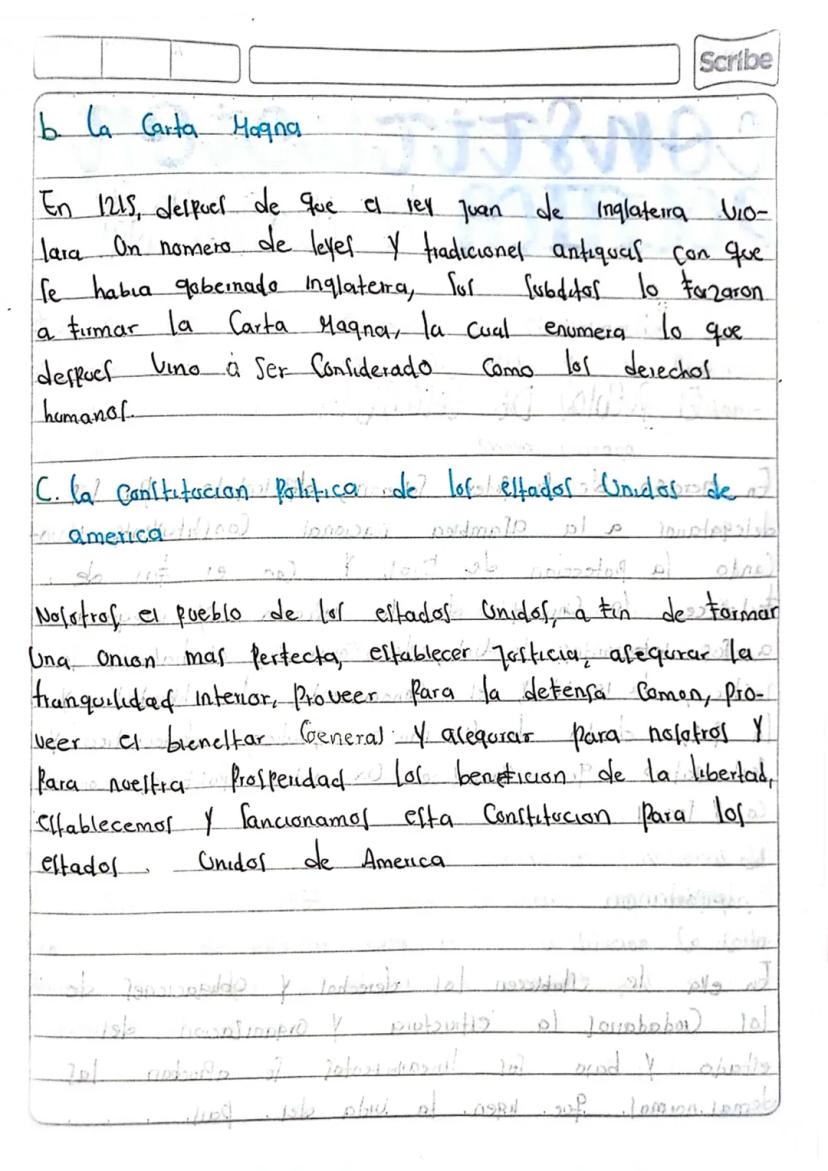 Scribe
b. La Carta Magna
En 1215, despues de que el rey Juan de Inglaterra vio-
lara un numero de leyes y tradiciones antiguas con que
se habia gobernado Inglaterra, sus subditos lo forzaron
a firmar la Carta Magna, la cual enumera lo que
despues vino a ser considerado como los derechos
humanos.
C. La Constitucion Politica de los estados Unidos de
america
Nosotros, el pueblo de los estados Unidos, a fin de formar
una union mas perfecta, establecer justicia, asegurar la
tranquilidad interior, proveer para la defensa comun, pro-
veer el bienestar General y asegurar para nosotros y
para nuestra prosperidad los beneficion de la libertad,
establecemos y sancionamos esta Constitucion para los
estados Unidos de America